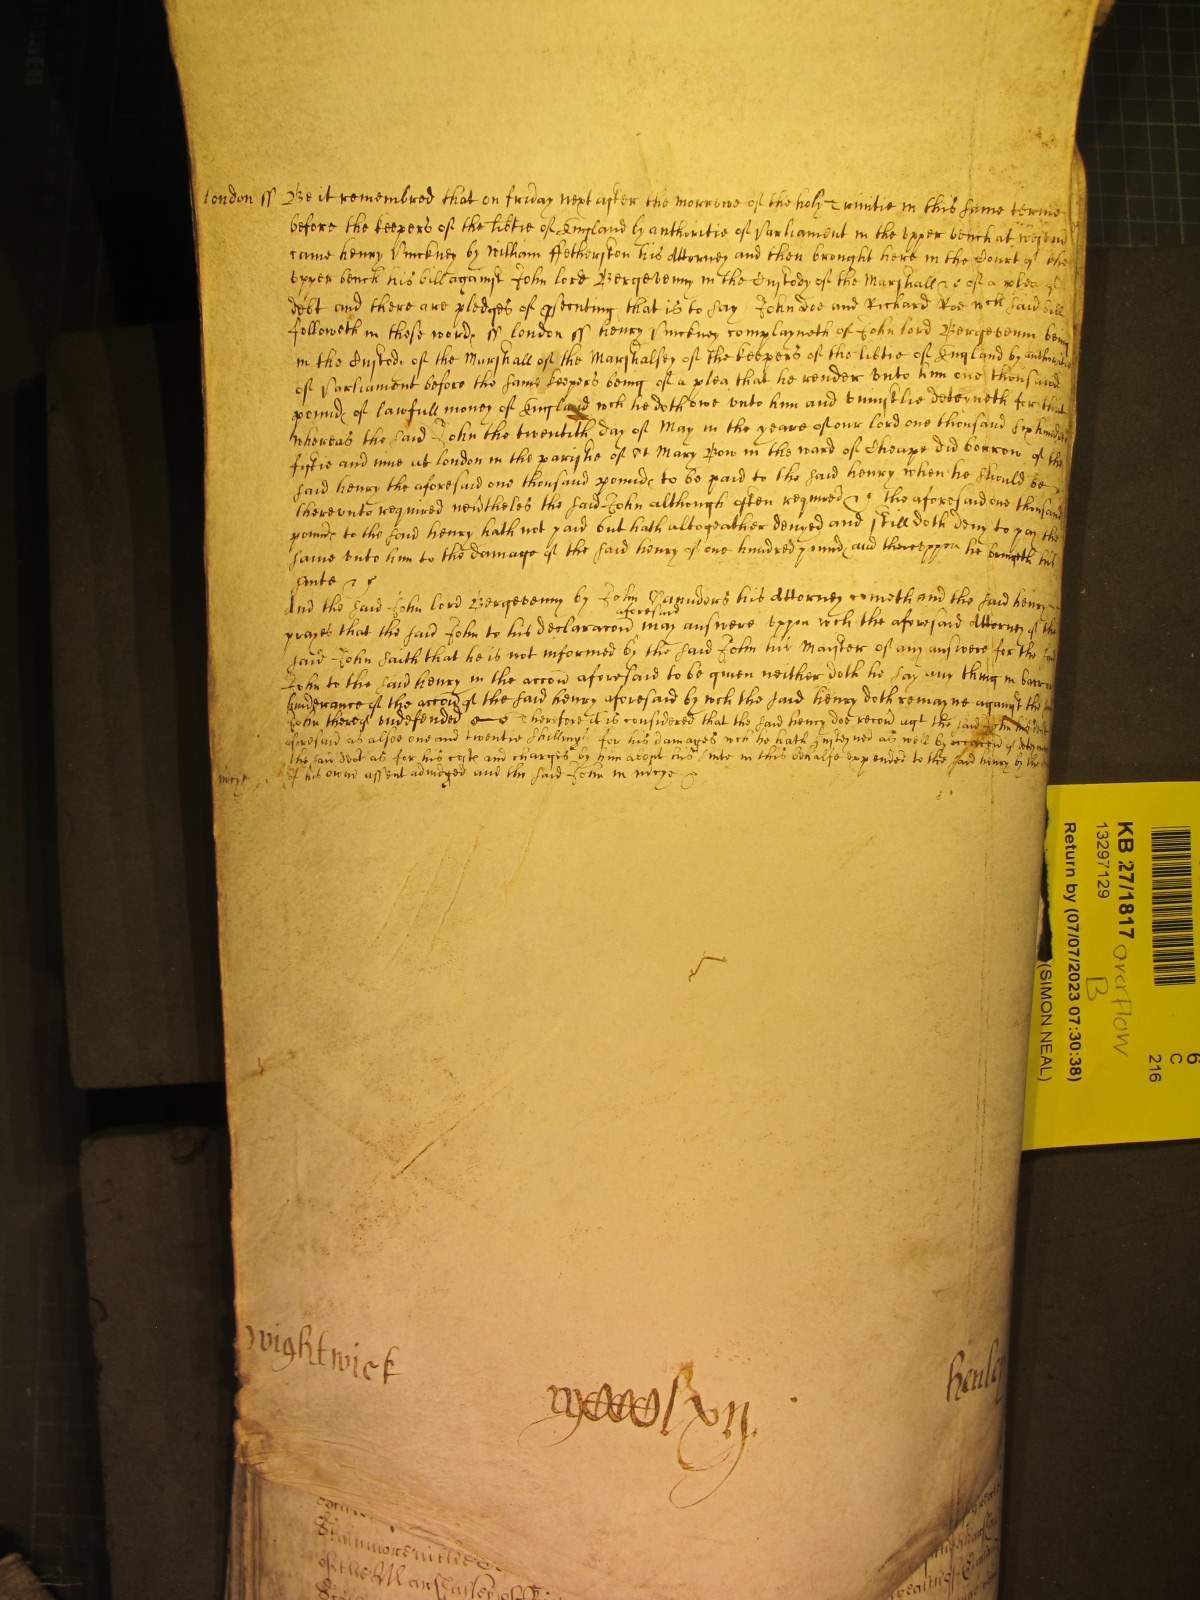 london ss Be it remembred that on friday next after the morrowe of the holy Trinitie in this same terme
before the keepers of the libtie of England by authoritie of Parliament in the upper bench at
came henry Pinckney by William ffetherston his Attorney and then brought here in the Court of the
upper bench his bill against John lord Bergevenny in the Custody of the Marshall &c of a plea of
debt and there are pledges of psecuting that is to say John Doe and Richard Roe wch said bill
followeth in these words ss london ss henry Pinckney complayneth of John lord Bergevenn being
in the Custody of the Marshall of the Marshalsey of the keepers of the libtie of England by authoritie
of Parliament before the same keepers being of a plea that he render unto him one thousand
pounds of lawfull money of England wch he doth owe unto him and uniustlie deteyneth for that
whereas the said John the twentith day of May in the yeare of our lord one thousand six hundred
fiftie and nine at london in the parishe of St Mary Bow in the ward of Cheape did borrow of the
said henry the aforesaid one thousand pounds to be paid to the said henry when he should be
thereunto required neitheles the said John although often required &c the aforesaid one thousand
pounds to the said henry hath not paid but hath altogeather denyed and still doth deny to pay the
same unto him to the damage of the said henry of one hundred pounds and thereuppon he bringeth his
sute &c
And the said John lord Bergevenny by John Saunders his Attorney cometh and the said henry
aforesaid
prayes that the said John to his declaracon may answere uppon wch the aforesaid Attorney of the
said John saith that he is not informed by the said John his Maister of any answere for the said
John to the said henry in the accon aforesaid to be given neither doth he say any thing in barr or
hinderance of the accon of the said henry aforesaid by wch the said henry doth remayne against the said
John thereof undefended Therefore it is considered that the said henry doe recou agt the said John his debt
aforesaid as alsoe one and twentie shillings for his damages wch he hath susteyned as well by occacon of deteyning
the said debt as for his costs and charges by him about his sute in this behalfe expended to the said henry by the
mcye of his owne assent adiudged and the said John in mcye
Wightwick
henley
KB 27/1817 overflow
B
13297129
Return by (07/07/2023 07:30:38)
(SIMON NEAL)
6
C
216
of the Marshalsey of